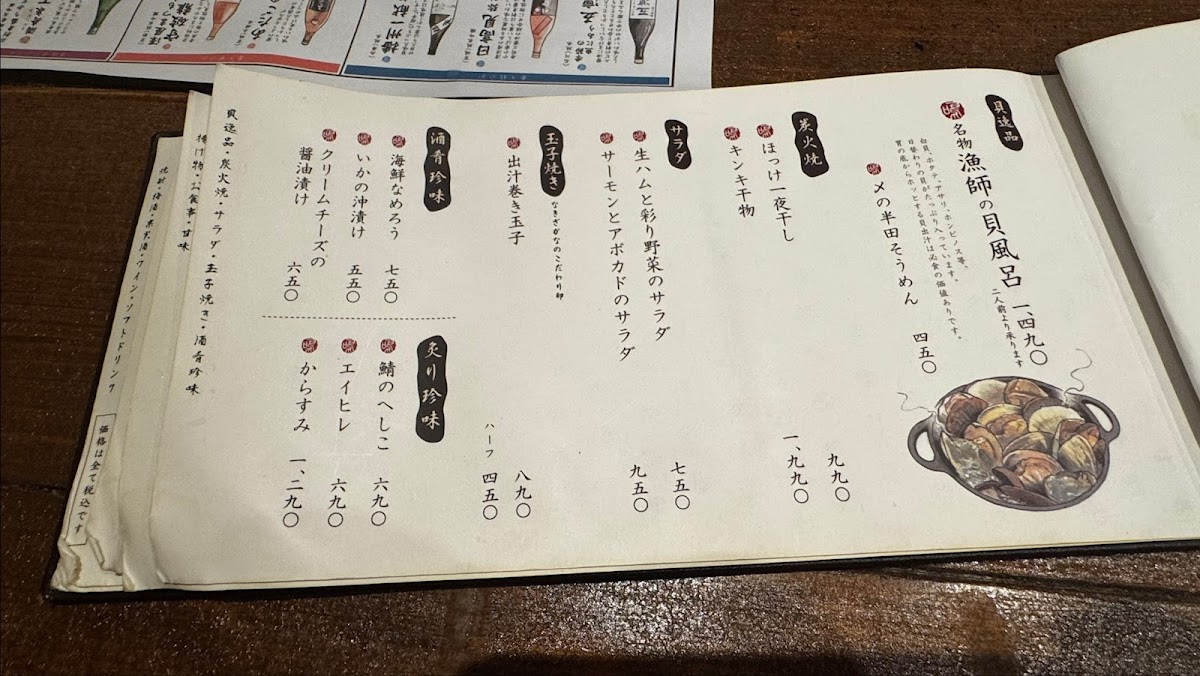 貝逸品
名物 漁師の貝風呂 一、四九〇
二人前より承ります
白貝、ホタテ、アサリ、ホンビノス等、
日替わりの貝がたっぷり入っています。
胃の底からホッとする貝出汁は必食の価値ありです。
〆の半田そうめん 四五〇
炭火焼
ほっけ一夜干し 九九〇
キンキ干物 一、九九〇
サラダ
生ハムと彩り野菜のサラダ 七五〇
サーモンとアボカドのサラダ 九五〇
玉子焼き なきざかなのこだわり卵
出汁巻き玉子 八九〇
ハーフ 四五〇
酒肴珍味
海鮮なめろう 七五〇
いかの沖漬け 五五〇
クリームチーズの
醤油漬け 六五〇
炙り珍味
鯖のへしこ 六九〇
エイヒレ 六九〇
からすみ 一、二九〇
貝逸品・炭火焼・サラダ・玉子焼き・酒肴珍味
揚げ物・お食事・甘味
焼酎・梅酒・果実酒・ワイン・ソフトドリンク
価格は全て税込です
播州一献
日高見